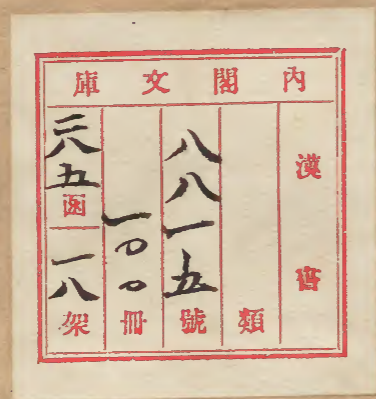 內閣文庫
漢書
類
八八一五號
一〇〇冊
二八五函
一八架